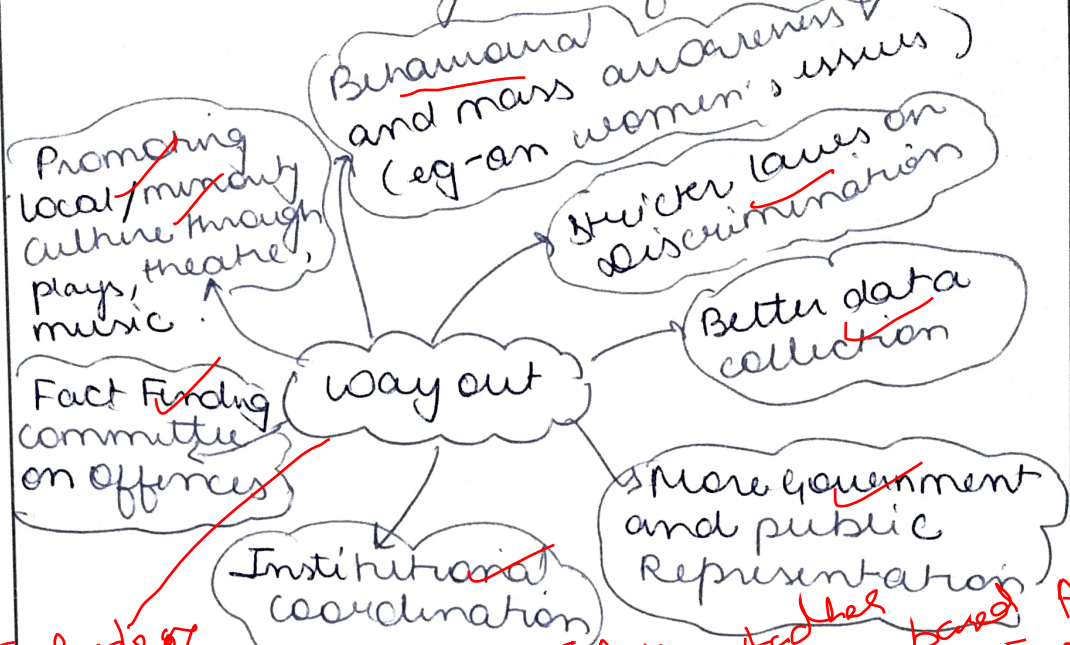 Behavioural
and mass awareness
(eg-on women's issues)
Promoting
local/minority
culture through
plays, theatre,
music.
Stricter laws on
Discrimination
Better data
collection
way out
Fact Finding
committee
on offences
More government
and public
Representation
Institutional
coordination
based